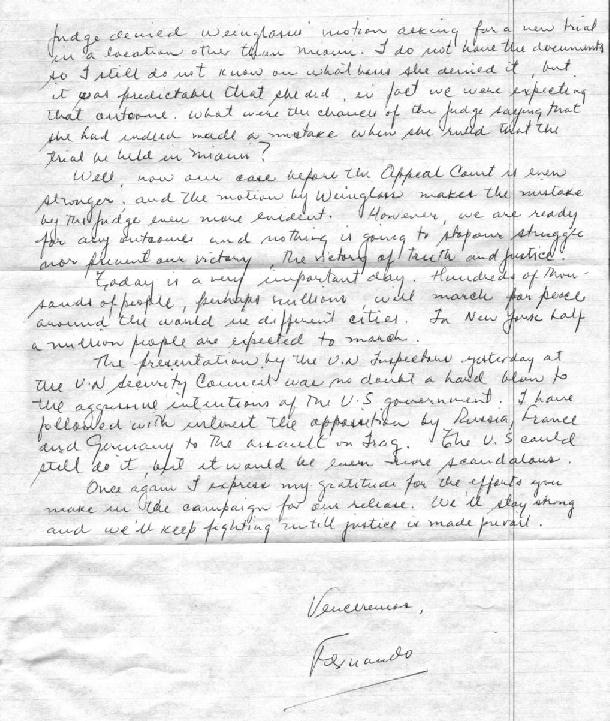 judge denied Weinglass' motion asking for a new trial
in a location other than Miami. I do not have the documents
so I still do not know on what basis she denied it, but
it was predictable that she did, in fact we were expecting
that outcome. What were the chances of the judge saying that
she had indeed made a mistake when she ruled that the
trial be held in Miami?
Well, now our case before the Appeal Court is even
stronger, and the motion by Weinglass makes the mistake
by the judge even more evident. However, we are ready
for any outcome and nothing is going to stop our struggle
nor prevent our victory, the victory of truth and justice.
Today is a very important day. Hundreds of thou-
sands of people, perhaps millions, will march for peace
around the world in different cities. In New York half
a million people are expected to march.
The presentation by the U.N Inspectors yesterday at
the U.N Security Council was no doubt a hard blow to
the aggressive intentions of the U.S government. I have
followed with interest the opposition by Russia, France
and Germany to the assault on Iraq. The U.S could
still do it, but it would be even more scandalous.
Once again I express my gratitude for the efforts you
make in the campaign for our release. We'll stay strong
and we'll keep fighting untill justice is made prevail.
Venceremos,
Fernando